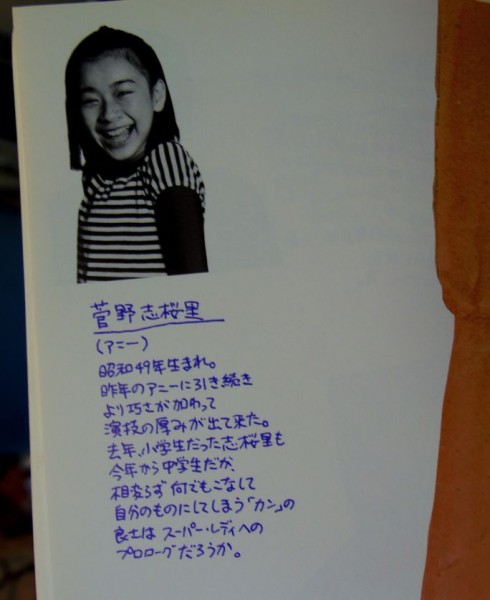 菅野志桜里
(アニー)
昭和49年生まれ。
昨年のアニーに引き続き
より巧さが加わって
演技の厚みが出て来た。
去年、小学生だった志桜里も
今年から中学生だが、
相変らず何でもこなして
自分のものにしてしまう「カン」の
良さは スーパー・レディへの
プロローグだろうか。